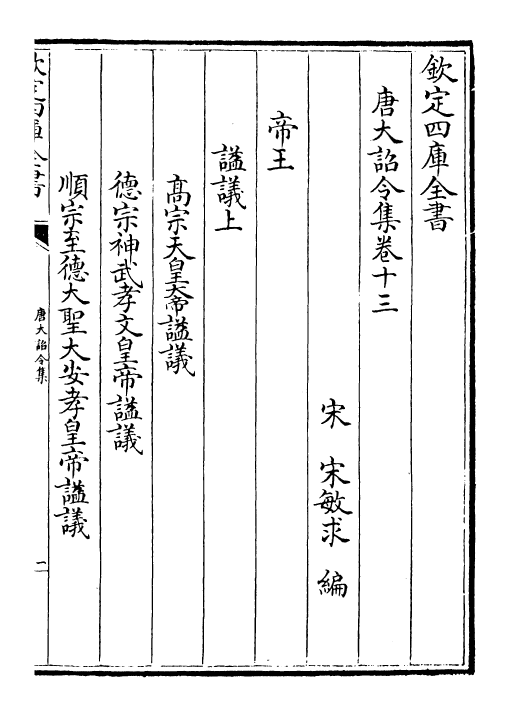 欽定四庫全書
唐大詔令集卷十三
宋　宋敏求　編
帝王
謚議上
高宗天皇大帝謚議
德宗神武孝文皇帝謚議
順宗至德大聖大安孝皇帝謚議
欽定四庫全書
唐大詔令集